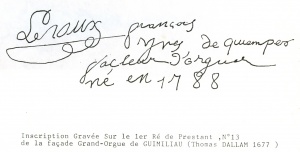 Leroux françois
yves de quimper
facteur d'orgue
né en 1788
Inscription Gravée Sur le 1er Ré de Prestant ,N°13
de la façade Grand-Orgue de GUIMILIAU (Thomas DALLAM 1677 )